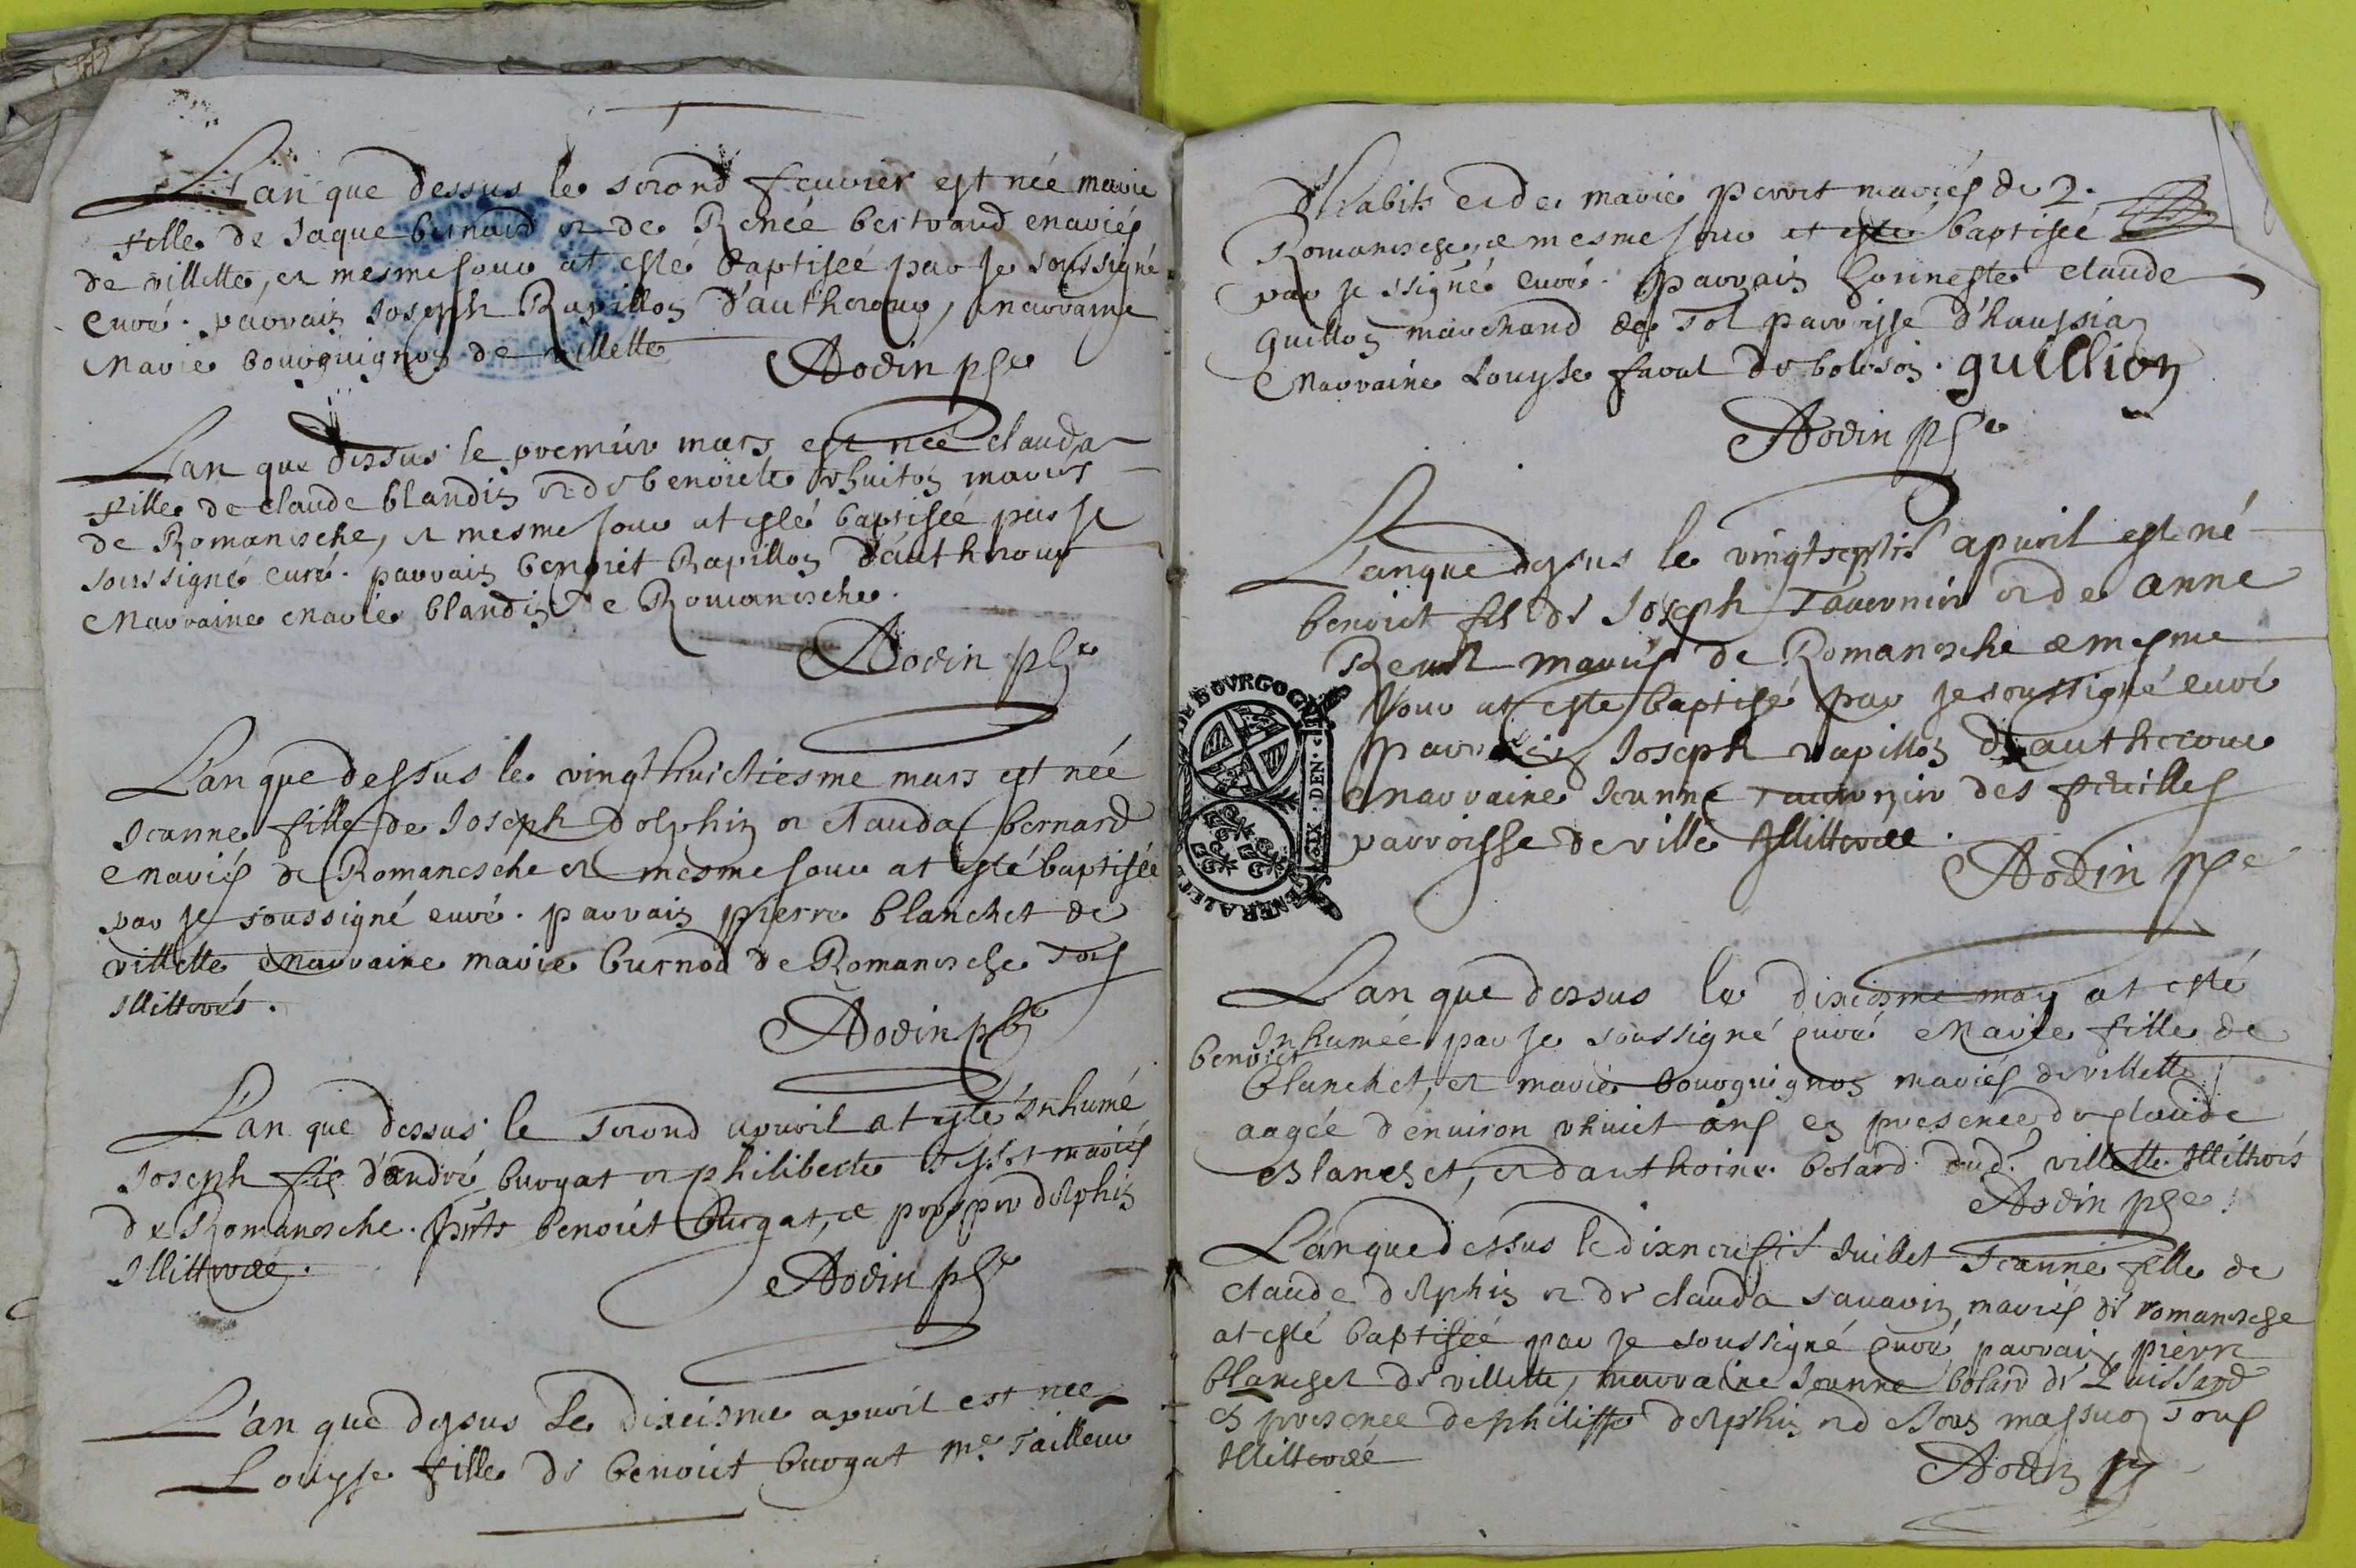 L'an que dessus le second feuvrier est née marie
fille de Jaque bernard et de Renée bertrand mariés
de villette, et mesme jour at esté baptisée par je soussigné
curé. parrain Joseph Rapillon d'authecour, marraine
Marie bourguignon de villette
Aodin pbre
L'an que dessus le premier mars est née clauda
fille de claude blandin et de benoiete
mariés
de Romanesche, et mesme jour at esté baptisée par je
soussigné curé. parrain benoiet Rapillon d'authecour
Marraine marie blandin de Romanesche.
Aodin pbre
L'an que dessus le vingt huictiesme mars est née
Jeanne fille de Joseph dolphin et clauda bernard
mariés de Romanesche et mesme jour at esté baptisée
par je soussigné curé. parrain pierre blanchet de
villette marraine marie burnod de Romanesche Tous
Illitterés.
Aodin pbre
L'an que dessus le second apvril at esté Inhumé
Joseph fils d'andré burgat et philiberte mariés
de Romanesche. pnts benoiet Burgat, et prosper dolphin
Illitterée.
Aodin pbre
L'an que dessus le dixiesme apvril est née
Louyse fille de benoiet burgat me. Tailleur
d'habits et de marie perret mariés de
Romanesche, ce mesme jour at esté baptisée
par je ssigné curé. parrain honneste claude
Guillon marchand de Tol parroisse d'haussia
Marraine Louyse faval de boloson. guillion
Aodin pbre
L'an que dessus le vingtseptis apvril est né
benoiet fils de Joseph Tavernier et de anne
mariés de Romanesche ce mesme
Jour at esté baptisé par je soussigné curé
parrain Joseph rapillon d'authecour
Marraine Jeanne Tavernier des feuilles
parroisse de ville Illitterée.
Aodin pbre
DE BOVRGOGNE
GENERALITE
SIX · DEN ·
L'an que dessus le dixiesme may at esté
Inhumée par je soussigné curé Marie fille de
benoiet
blanchet, et marie bourguignon mariés de villette
aagée d'environ vhuict ans en presence de claude
Blanchet, et d'anthoine bolard dud. villette Illitterés
Aodin pbre.
L'an que dessus le dixneufis Juillet Jeanne fille de
claude dolphin et de clauda savarin mariés de romanesche
at esté baptisée par je soussigné curé, parrain pierre
blanchet de villette, marraine Jeanne bolard de Luissard
en presence de philippe dolphin et de massuon Tous
Illitterée
Aodin